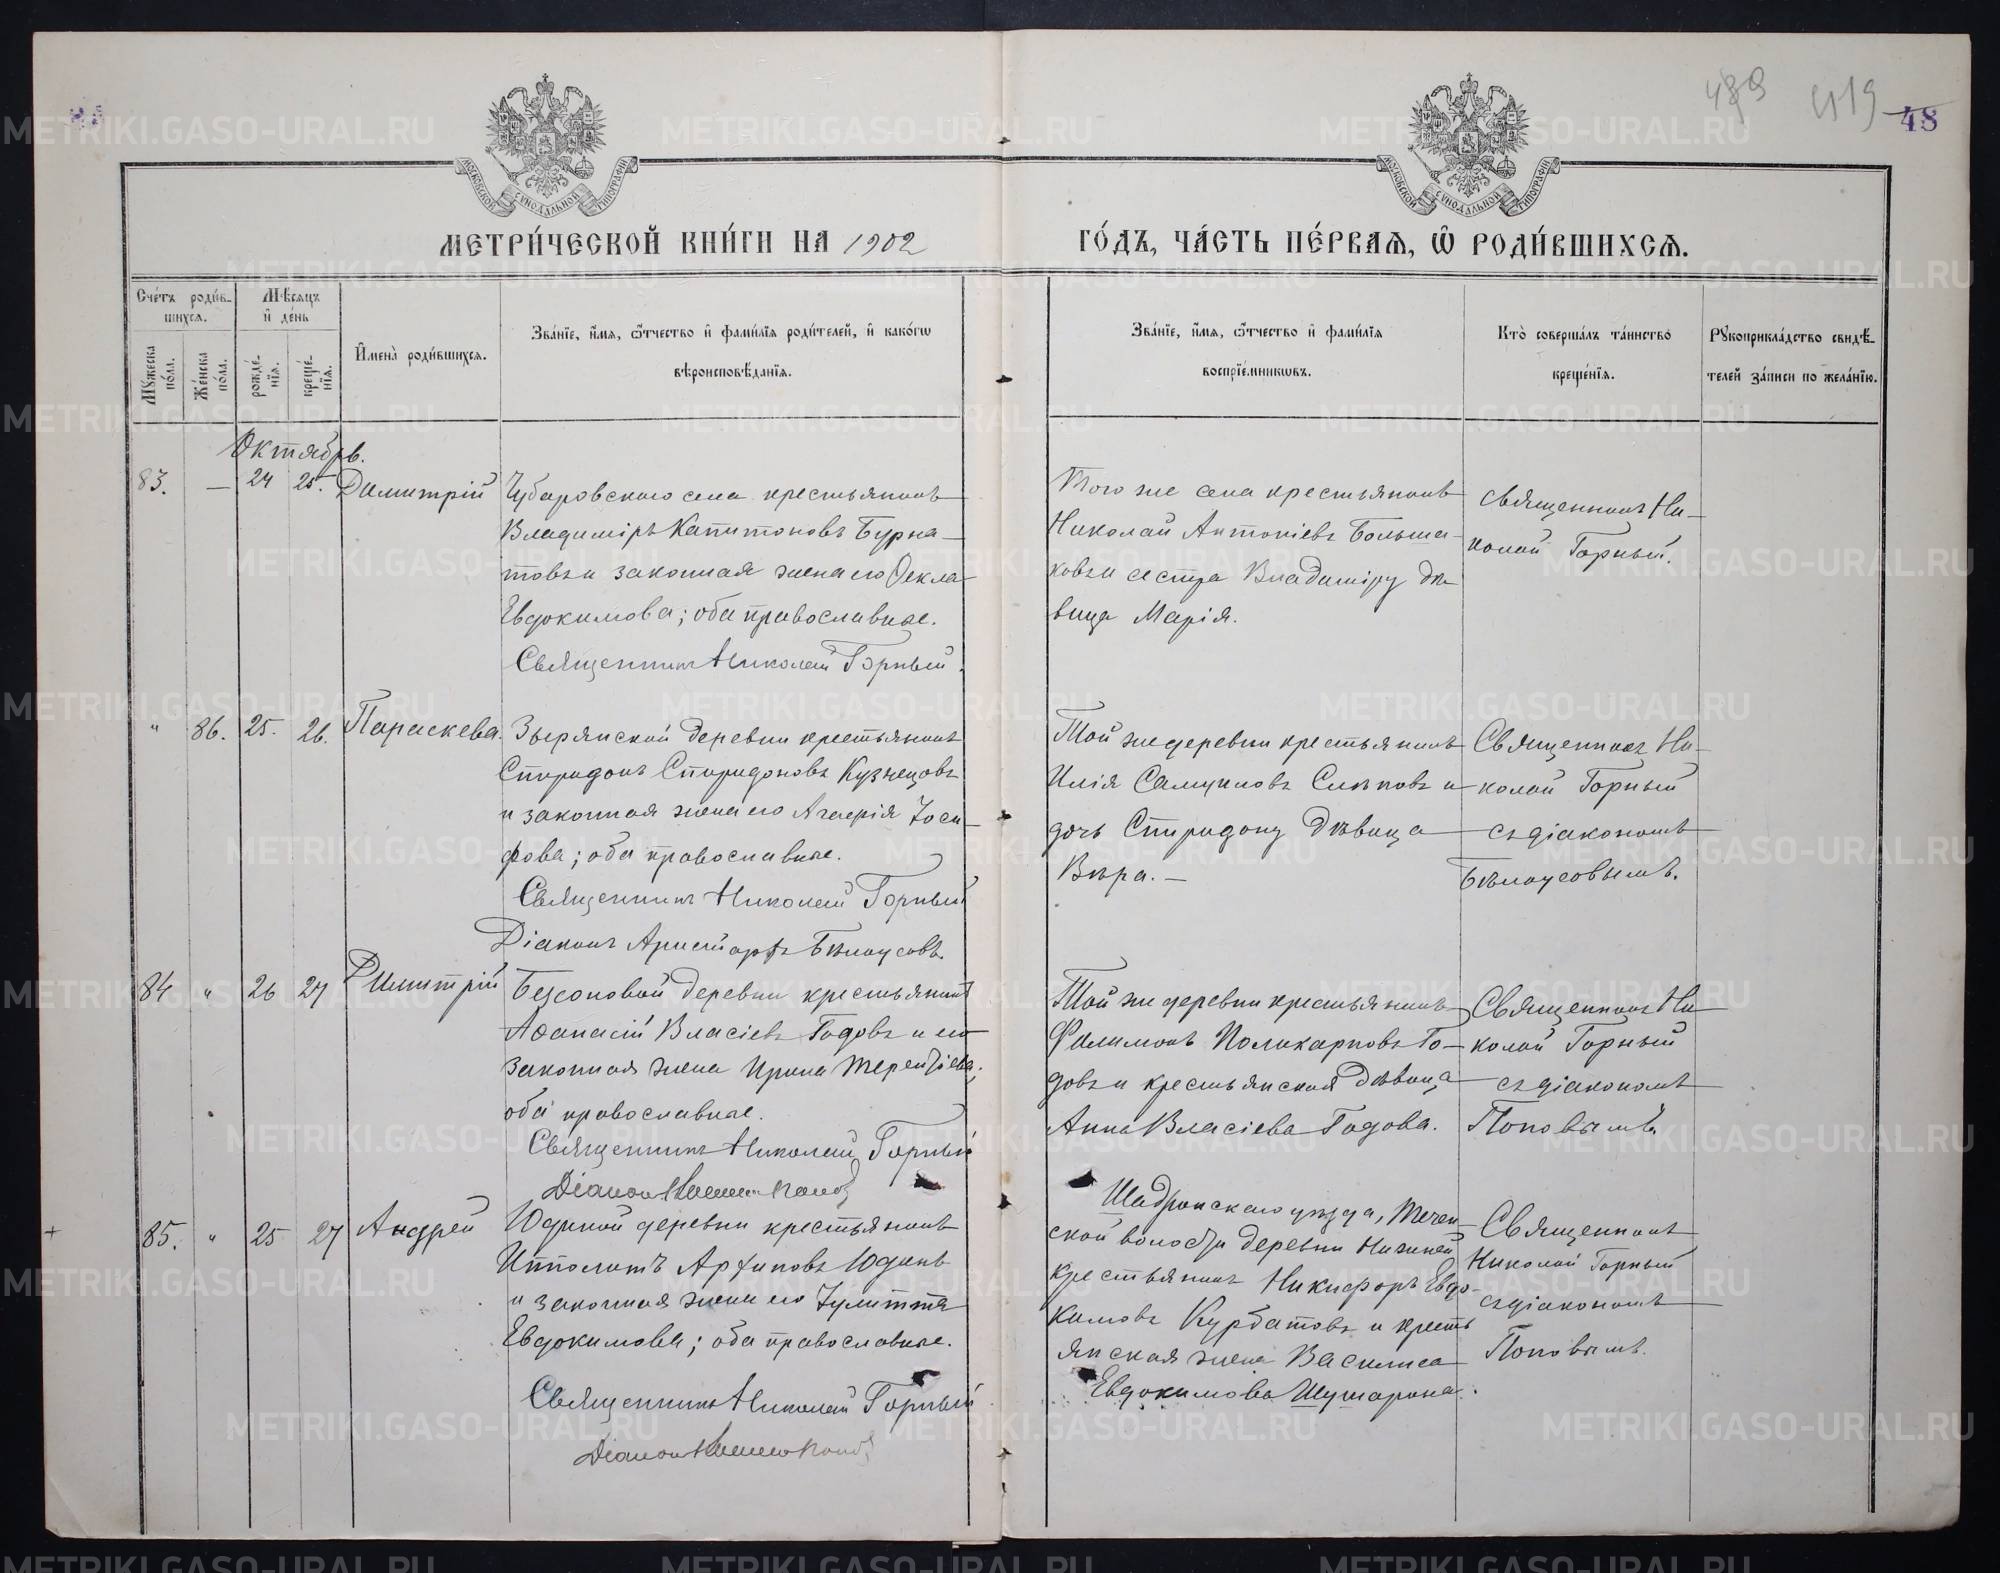 48
419
МОСКОВСКОЙ СѴНОДАЛЬНОЙ ТИПОГРАФІИ
МОСКОВСКОЙ СѴНОДАЛЬНОЙ ТИПОГРАФІИ
МЕТРИ́ЧЕСКОЙ КНИ́ГИ НА 1902
ГО́ДЪ, ЧА́СТЬ ПЕ́РВАѦ, Ѡ҆ РОДИ́ВШИХСѦ.
Сче́тъ роди́в-
шихсѧ.
Мꙋ́жеска по́ла.
Же́нска по́ла.
Мѣ́сѧцъ
и҆ де́нь
рожде́-
нїѧ.
креще́-
нїѧ.
И҆мена̀ роди́вшихсѧ.
Зва́нїе, и҆́мѧ, ѻ҆́тчество и҆ фами́лїѧ роди́телей, и҆ како́гѡ
вѣроисповѣ́данїѧ.
Зва́нїе, и҆́мѧ, ѻ҆́тчество и҆ фами́лїѧ
воспрїе́мникѡвъ.
Кто̀ соверша́лъ та́инство
креще́нїѧ.
Рꙋкоприкла́дство свидѣ́-
телей за́писи по жела́нїю.
Октябрь.
83. — 24 25. Димитрій
Чубаровскаго села крестьянинъ
Владиміръ Капитоновъ Бурна-
товъ и законная жена его Ѳекла
Евдокимова; оба православные.
Священникъ Николай Горный.
Того же села крестьянинъ
Николай Антоніевъ Больша-
ковъ и сестра Владиміру дѣ-
вица Марія.
Священникъ Ни-
колай Горный.
" 86. 25. 26. Параскева.
Зырянской деревни крестьянинъ
Спиридонъ Спиридоновъ Кузнецовъ
и законная жена его Агаѳія Іоси-
фова; оба православные.
Священникъ Николай Горный
Діаконъ Аристархъ Бѣлоусовъ.
Той же деревни крестьянинъ
Илія Самуиловъ Слѣповъ и
дочь Спиридону дѣвица
Вѣра. —
Священникъ Ни-
колай Горный
съ діакономъ
Бѣлоусовымъ.
84 " 26 27 Димитрій
Бессоновой деревни крестьянинъ
Аѳанасій Власіевъ Годовъ и его
законная жена Ирина Терентіева;
оба православные.
Священникъ Николай Горный
Діаконъ Поповъ
Той же деревни крестьянинъ
Филимонъ Поликарповъ Го-
довъ и крестьянская дѣвица
Анна Власіева Годова.
Священникъ Ни-
колай Горный
съ діакономъ
Поповымъ.
85. " 25 27 Андрей
Юдиной деревни крестьянинъ
Ипполитъ Архиповъ Юдинъ
и законная жена его Іулиттa
Евдокимова; оба православные.
Священникъ Николай Горный
Діаконъ Поповъ
Шадринскаго уѣзда, Течен-
ской волости деревни Нижней
крестьянинъ Никифоръ Евдо-
кимовъ Курбатовъ и кресть
янская жена Васимиса
Евдокимова Шушарина.
Священникъ
Николай Горный
съ діакономъ
Поповымъ.
METRIKI.GASO-URAL.RU